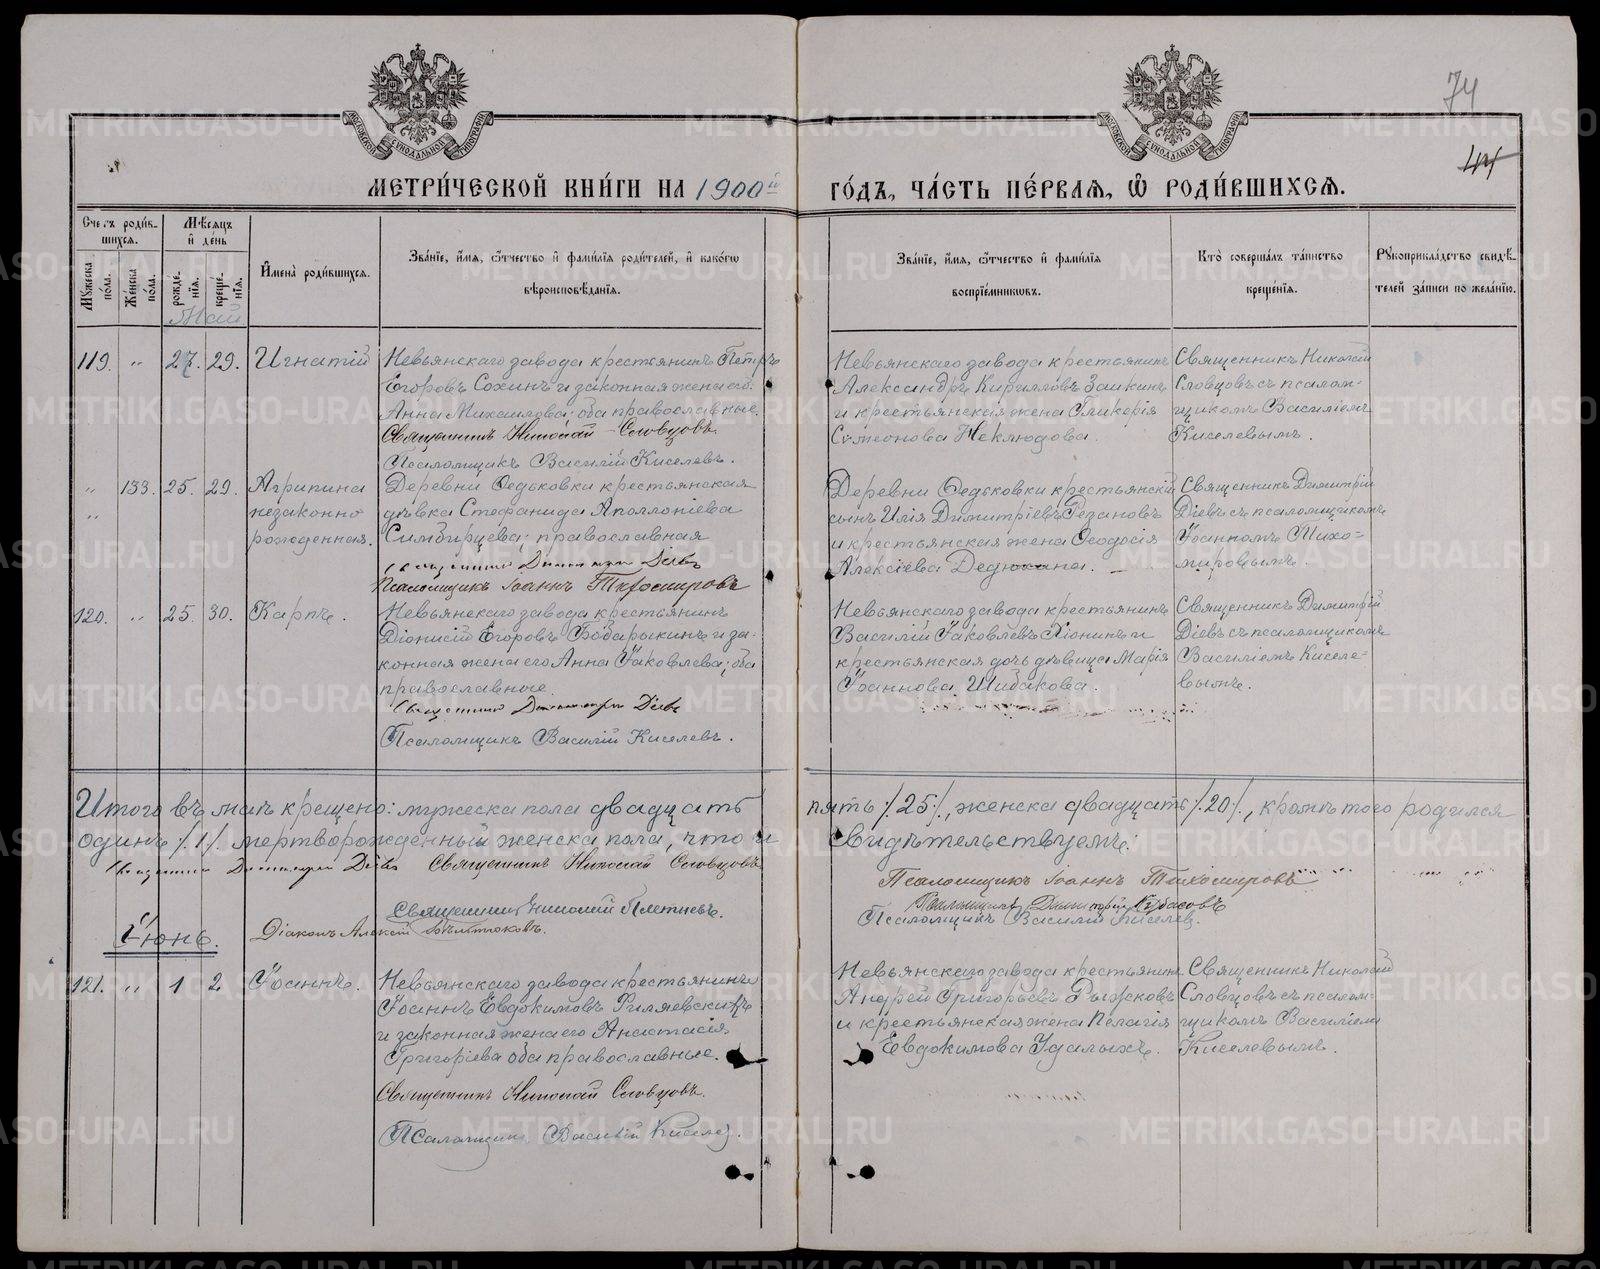 74
44
МЕТРИ́ЧЕСКОЙ КНИ́ГИ НА 1900й ГО́ДЪ, ЧА́СТЬ ПЕ́РВАЯ, Ѿ РОДИ́ВШИХСЯ.
Счетъ роди́в-
шихся.
Мꙋжеска по́ла.
Же́нска по́ла.
Мѣ́сяцъ
и҆ де́нь
рожде́-
нїя.
креще́-
нїя.
И҆мена̀ роди́вшихся.
Зва́нїе, и҆́мя, ѻ҆́тчество и҆ фами́лїя роди́телей, и҆ како́гѡ
вѣроисповѣ́данїя.
Зва́нїе, и҆́мя, ѻ҆́тчество и҆ фами́лїя
воспрїе́мникѡвъ.
Кто̀ соверша́лъ та́инство
креще́нїя.
Рꙋкоприкла́дство свидѣ́-
телей за́писи по жела́нїю.
Май
119. „ 27. 29. Игнатій
Невьянскаго завода крестьянинъ Петръ
Егоровъ Сохинъ и законная жена его
Анна Михаилова; оба православные.
Священникъ Николай Словцовъ.
Псаломщикъ Василій Киселевъ.
Невьянскаго завода крестьянинъ
Александръ Кирилловъ Заикинъ
и крестьянская жена Гликерія
Симеонова Неклюдова.
Священникъ Николай
Словцовъ съ псалом-
щикомъ Василіемъ
Киселевымъ.
„ 133. 25. 29. Агрипина
незаконно
рожденная.
Деревни Ѳедьковки крестьянская
дѣвка Стефанида Аполлоніева
Симбирцева; православная
Священникъ Димитрій Діевъ
Псаломщикъ Іоаннъ Тихомировъ
Деревни Ѳедьковки крестьянскій
сынъ Илія Димитріевъ Резановъ
и крестьянская жена Ѳеодосія
Алексіева Дедюхина.
Священникъ Димитрій
Діевъ съ псаломщикомъ
Іоанномъ Тихо-
мировымъ.
120. „ 25. 30. Карпъ.
Невьянскаго завода крестьянинъ
Діонисій Егоровъ Бобарыкинъ и за-
конная жена его Анна Іаковлева; оба
православные.
Священникъ Димитрій Діевъ
Псаломщикъ Василій Киселевъ.
Невьянскаго завода крестьянинъ
Василій Іаковлевъ Хіонинъ и
крестьянская дочь дѣвица Марія
Іоаннова Шибакова.
Священникъ Димитрій
Діевъ съ псаломщикомъ
Василіемъ Киселе-
вымъ.
Итого въ маѣ крещено: мужеска пола двадцать пять /25/, женска двадцать /20/, кромѣ того родился
одинъ /1/ мертворожденный женска пола, что и свидѣтельствуемъ:
Священникъ Димитрій Діевъ Священникъ Николай Словцовъ
Псаломщикъ Іоаннъ Тихомировъ
Священникъ Николай Плетневъ.
Псаломщикъ Димитрій
Діаконъ Алексій
Псаломщикъ Василій Киселев.
Іюнь.
121. „ 1 2 Іоаннъ.
Невьянскаго завода крестьянинъ
Іоаннъ Евдокимовъ Филяевскихъ
и законная жена его Анастасія
Григоріева оба православные.
Священникъ Николай Словцовъ.
Псаломщик. Василій Киселев.
Невьянскаго завода крестьянинъ
Андрей Григорьевъ Рыжковъ
и крестьянская жена Пелагія
Евдокимова Удалыхъ.
Священникъ Николай
Словцовъ съ псалом-
щикомъ Василіемъ
Киселевымъ.
METRIKI.GASO-URAL.RU